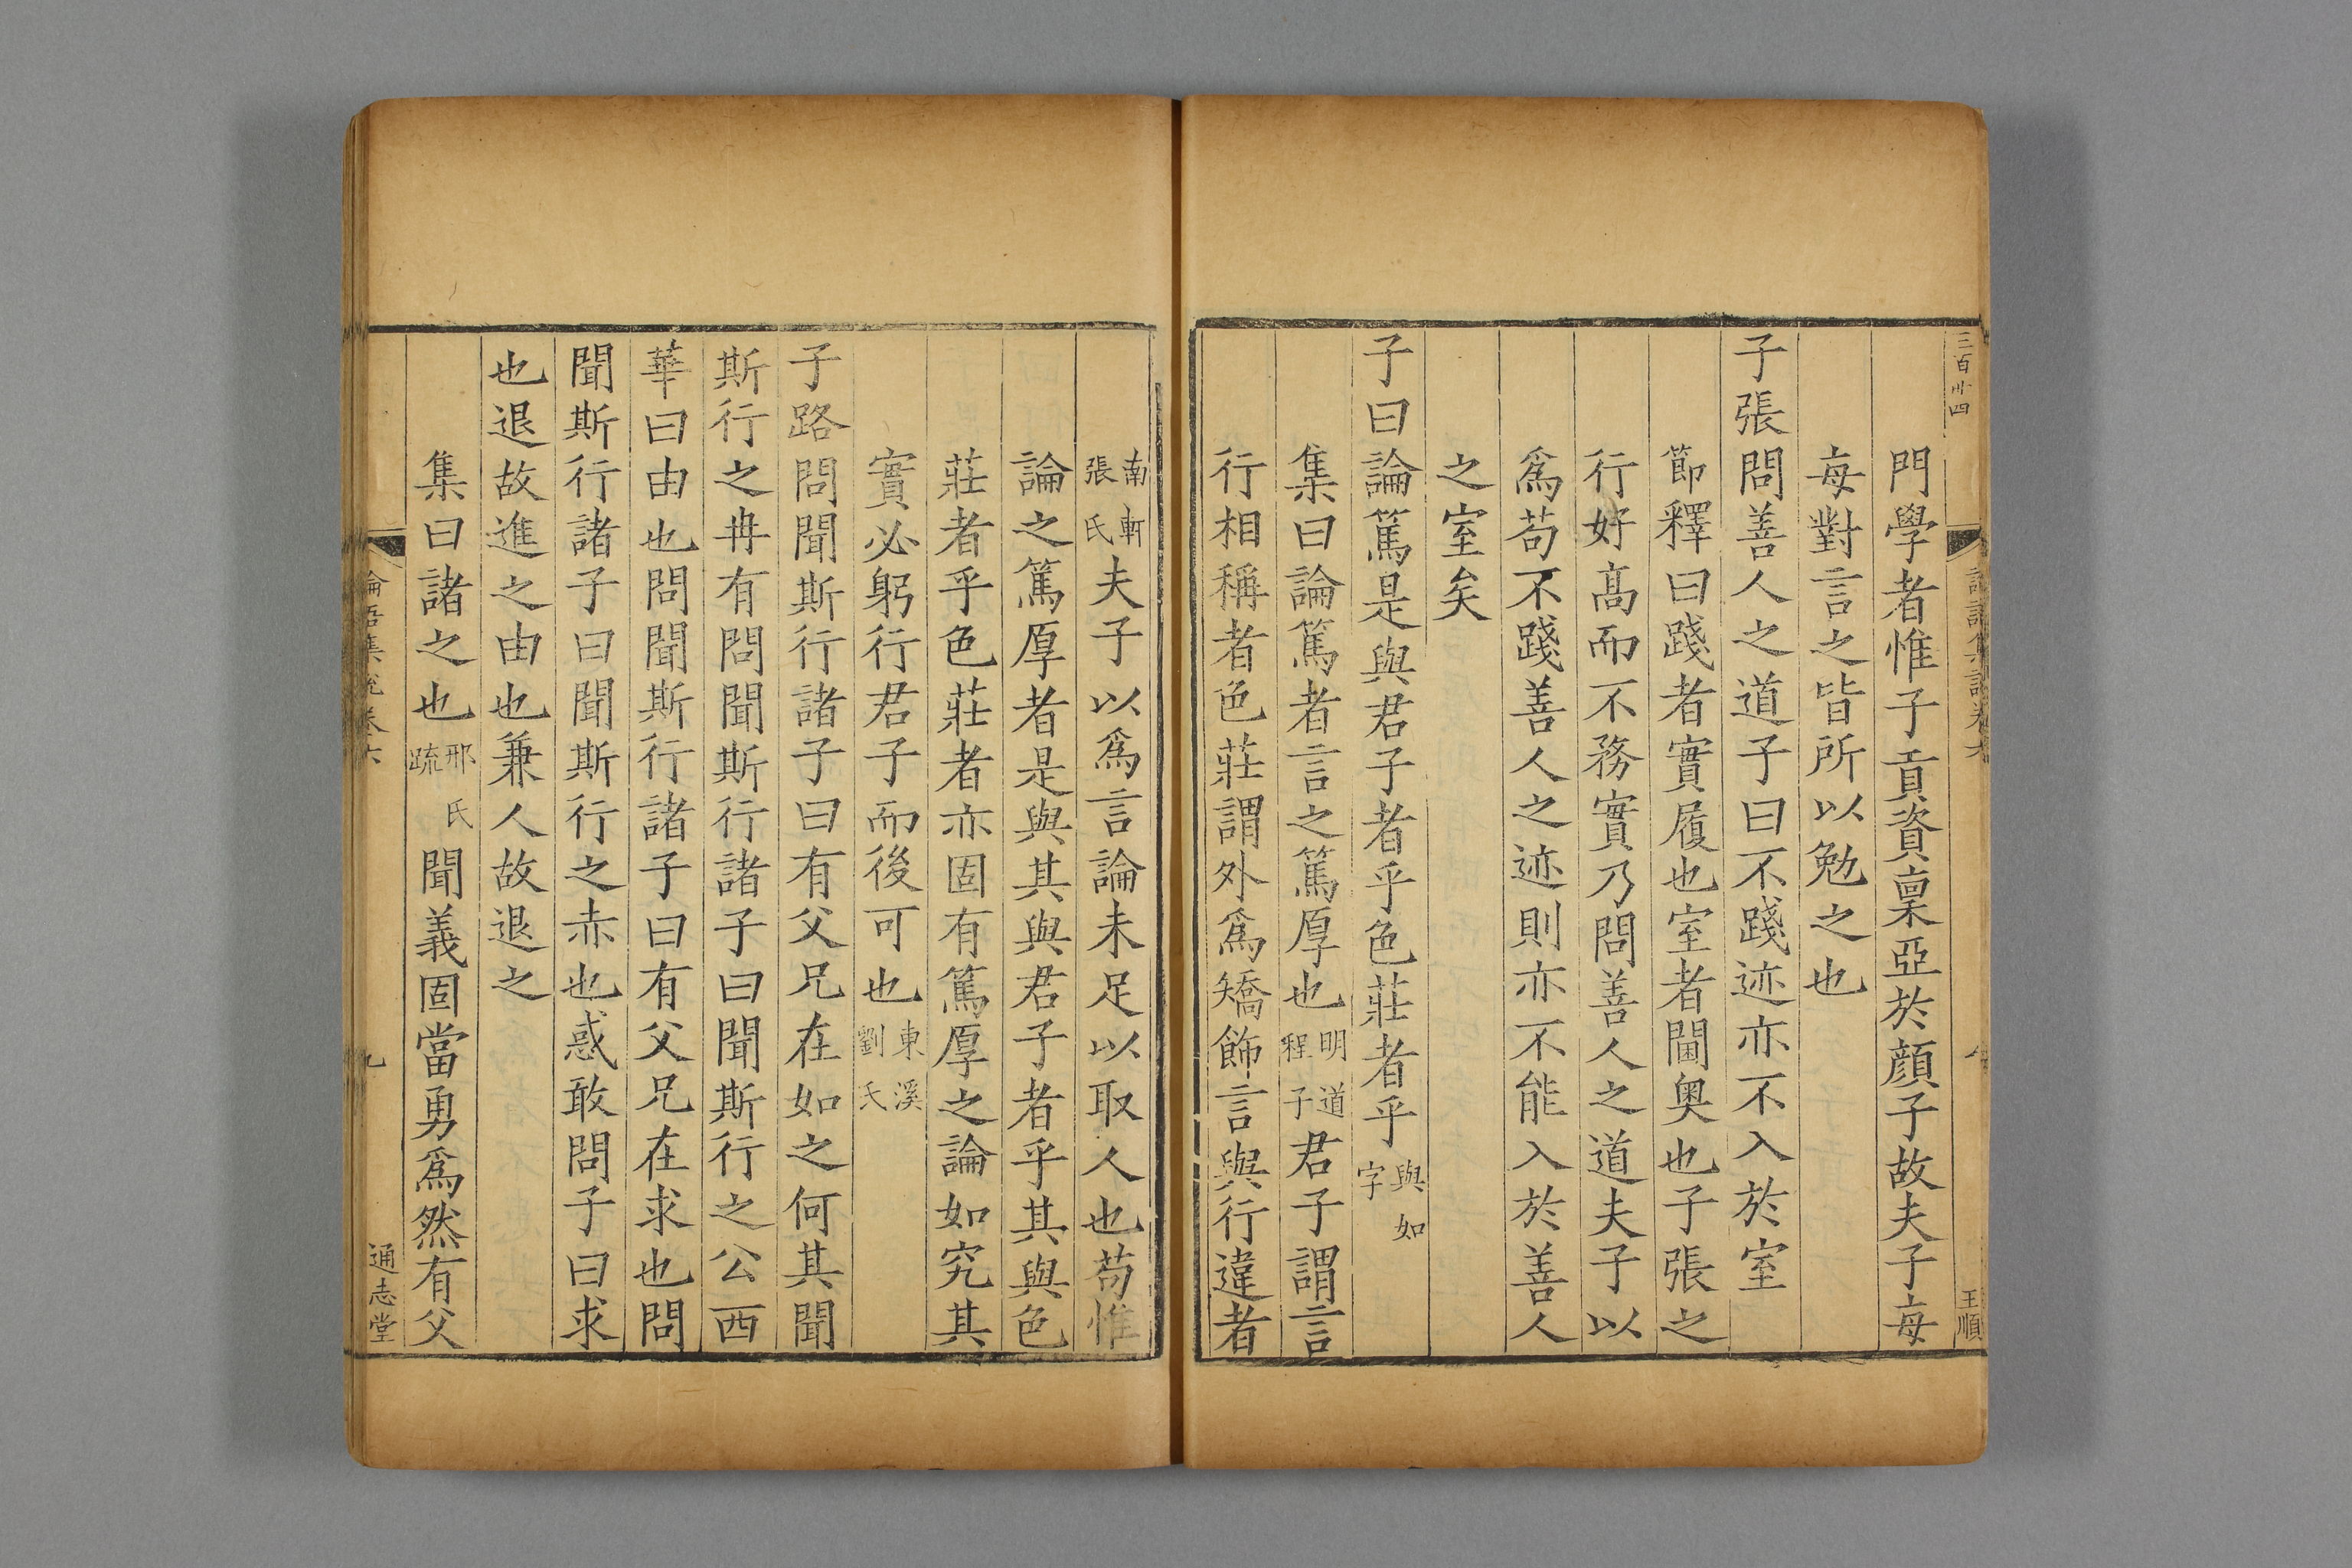 三百卅四
王順
門學者惟子貢資稟亞於顔子故夫子每
每對言之皆所以勉之也
子張問善人之道子曰不踐迹亦不入於室
節釋曰踐者實履也室者閫奥也子張之
行好髙而不務實乃問善人之道夫子以
爲苟不踐善人之迹則亦不能入於善人
之室矣
子曰論篤是與君子者乎色莊者乎與如字
集曰論篤者言之篤厚也明道程子君子謂言
行相稱者色莊謂外爲矯飾言與行違者
南軒張氏夫子以爲言論未足以取人也苟惟
論之篤厚者是與其與君子者乎其與色
莊者乎色莊者亦固有篤厚之論如究其
實必躬行君子而後可也東溪劉氏
子路問聞斯行諸子曰有父兄在如之何其聞
斯行之冉有問聞斯行諸子曰聞斯行之公西
華曰由也問聞斯行諸子曰有父兄在求也問
聞斯行諸子曰聞斯行之赤也惑敢問子曰求
也退故進之由也兼人故退之
集曰諸之也邢氏疏聞義固當勇爲然有父
論語集說卷六
九
通志堂